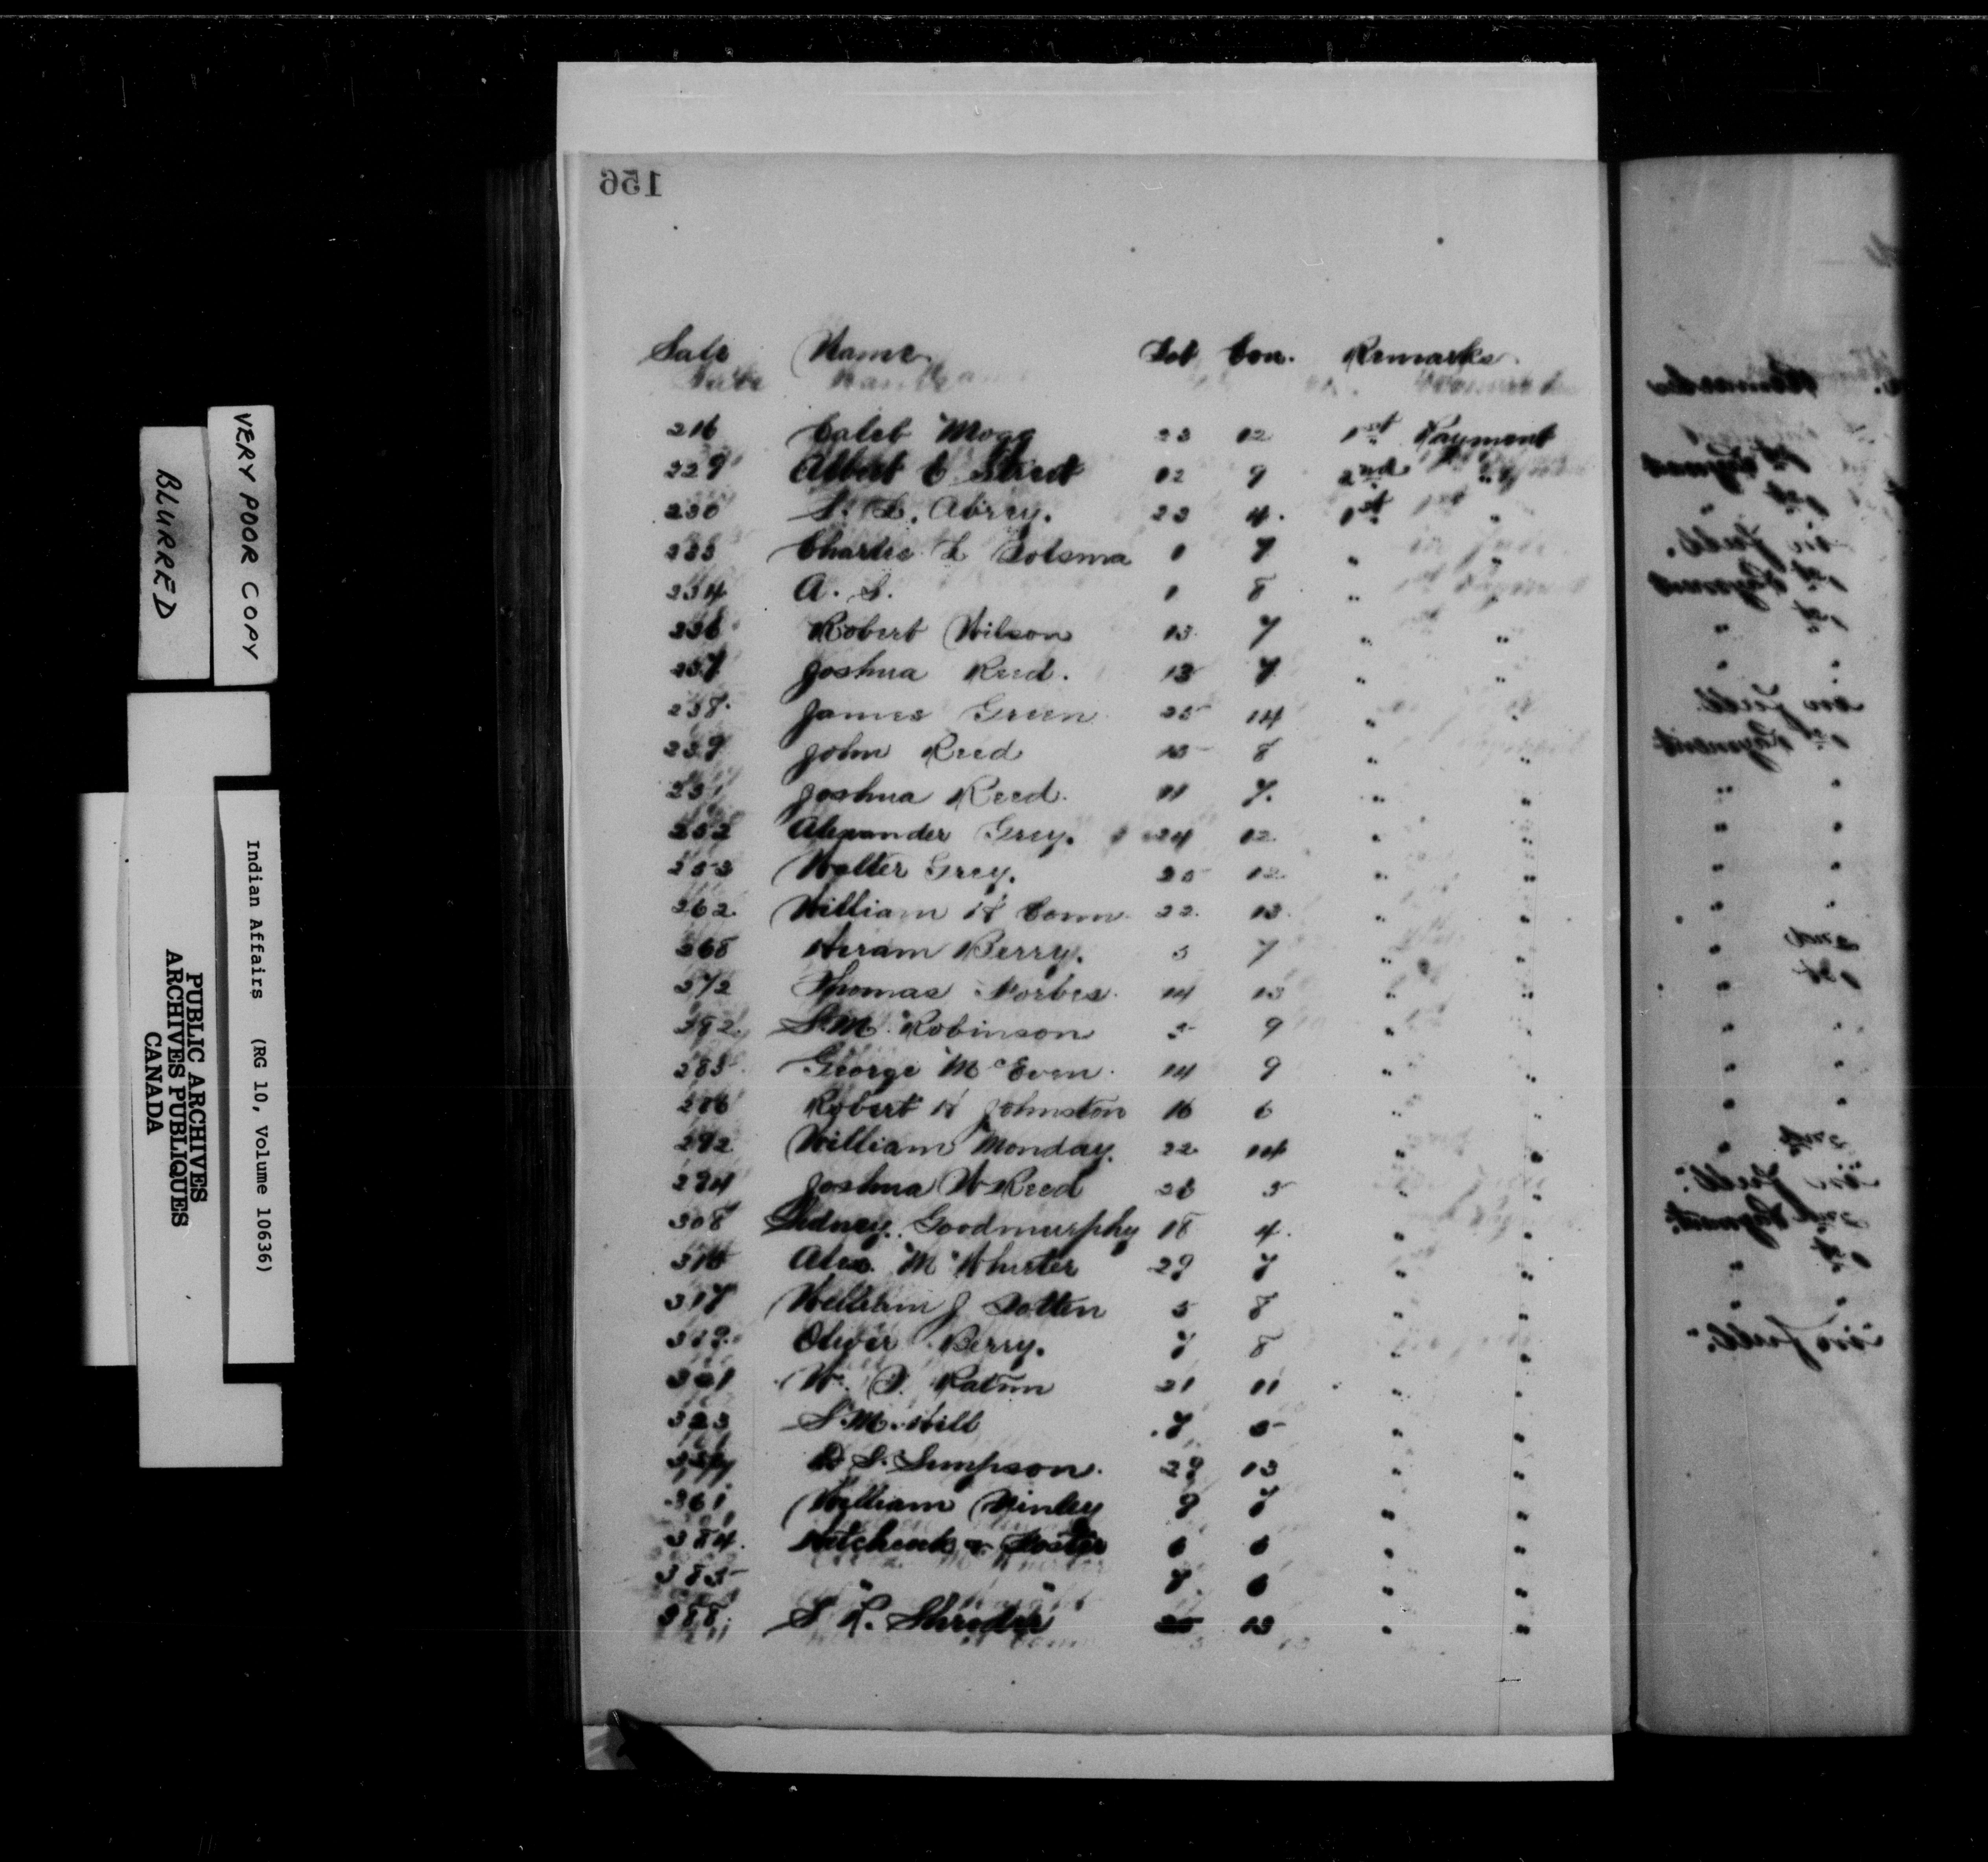 VERY POOR COPY
BLURRED
Indian Affairs (RG 10, Volume 10636)
PUBLIC ARCHIVES
ARCHIVES PUBLIQUES
CANADA
156
Sale Name Lot Con. Remarks
216 Caleb Mogg 23 12 1st Payment
229 Albert E Street 12 9 2nd "
230 S. L. Abrey. 23 4. 1st "
233 Charles L 1 7 " "
234 A. S. 1 8 " "
236 Robert Wilson 13 7 " "
237 Joshua Reed. 13 7 " "
238 James Green 25 14 " "
239 John Reed 15 8 " "
251 Joshua Reed. 11 7. " "
252 Alexander Grey. 24 12 " "
253 Walter Grey. 25 12 " "
262. William H Conn 22. 13. " "
268 Hiram Berry. 5 7 " "
272 Thomas Forbes. 14 13 " "
S. M. Robinson 5 9 " "
285 George McEven 14 9 " "
286 Robert H Johnston 16 6 " "
292 William Monday. 22 14 " "
294 Joshua W Reed 28 5 " "
308 Sidney Goodmurphy 18 4. " "
316 Alex. McWhirter 29 7 " "
317 William J Totten 5 8 " "
319. Oliver Berry. 7 8 " "
321 21 11 " "
323 S. M. Hill 7 5 " "
D. S. Simpson. 29 13 " "
361 William 9 7 " "
384. & Foster 6 6 " "
385 " " 7. 6 " "
388. S L. 25 13 " "
Remarks
1st Payment
1st "
in full.
1st Payment
1st "
"
in full
1st Payment
2nd "
1st "
2nd "
in full.
2nd Payment
1st "
in full.